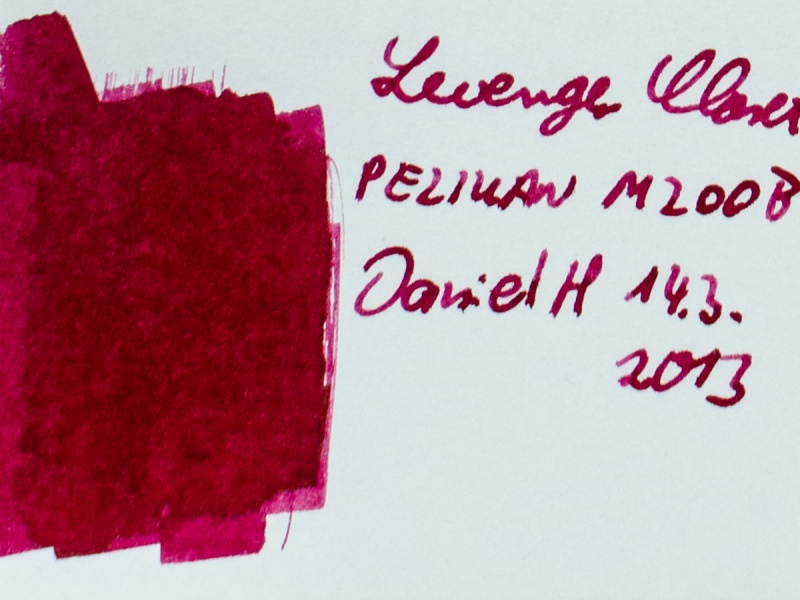 Levenger Claret
PELIKAN M200 B
Daniel H 14.3.
2013